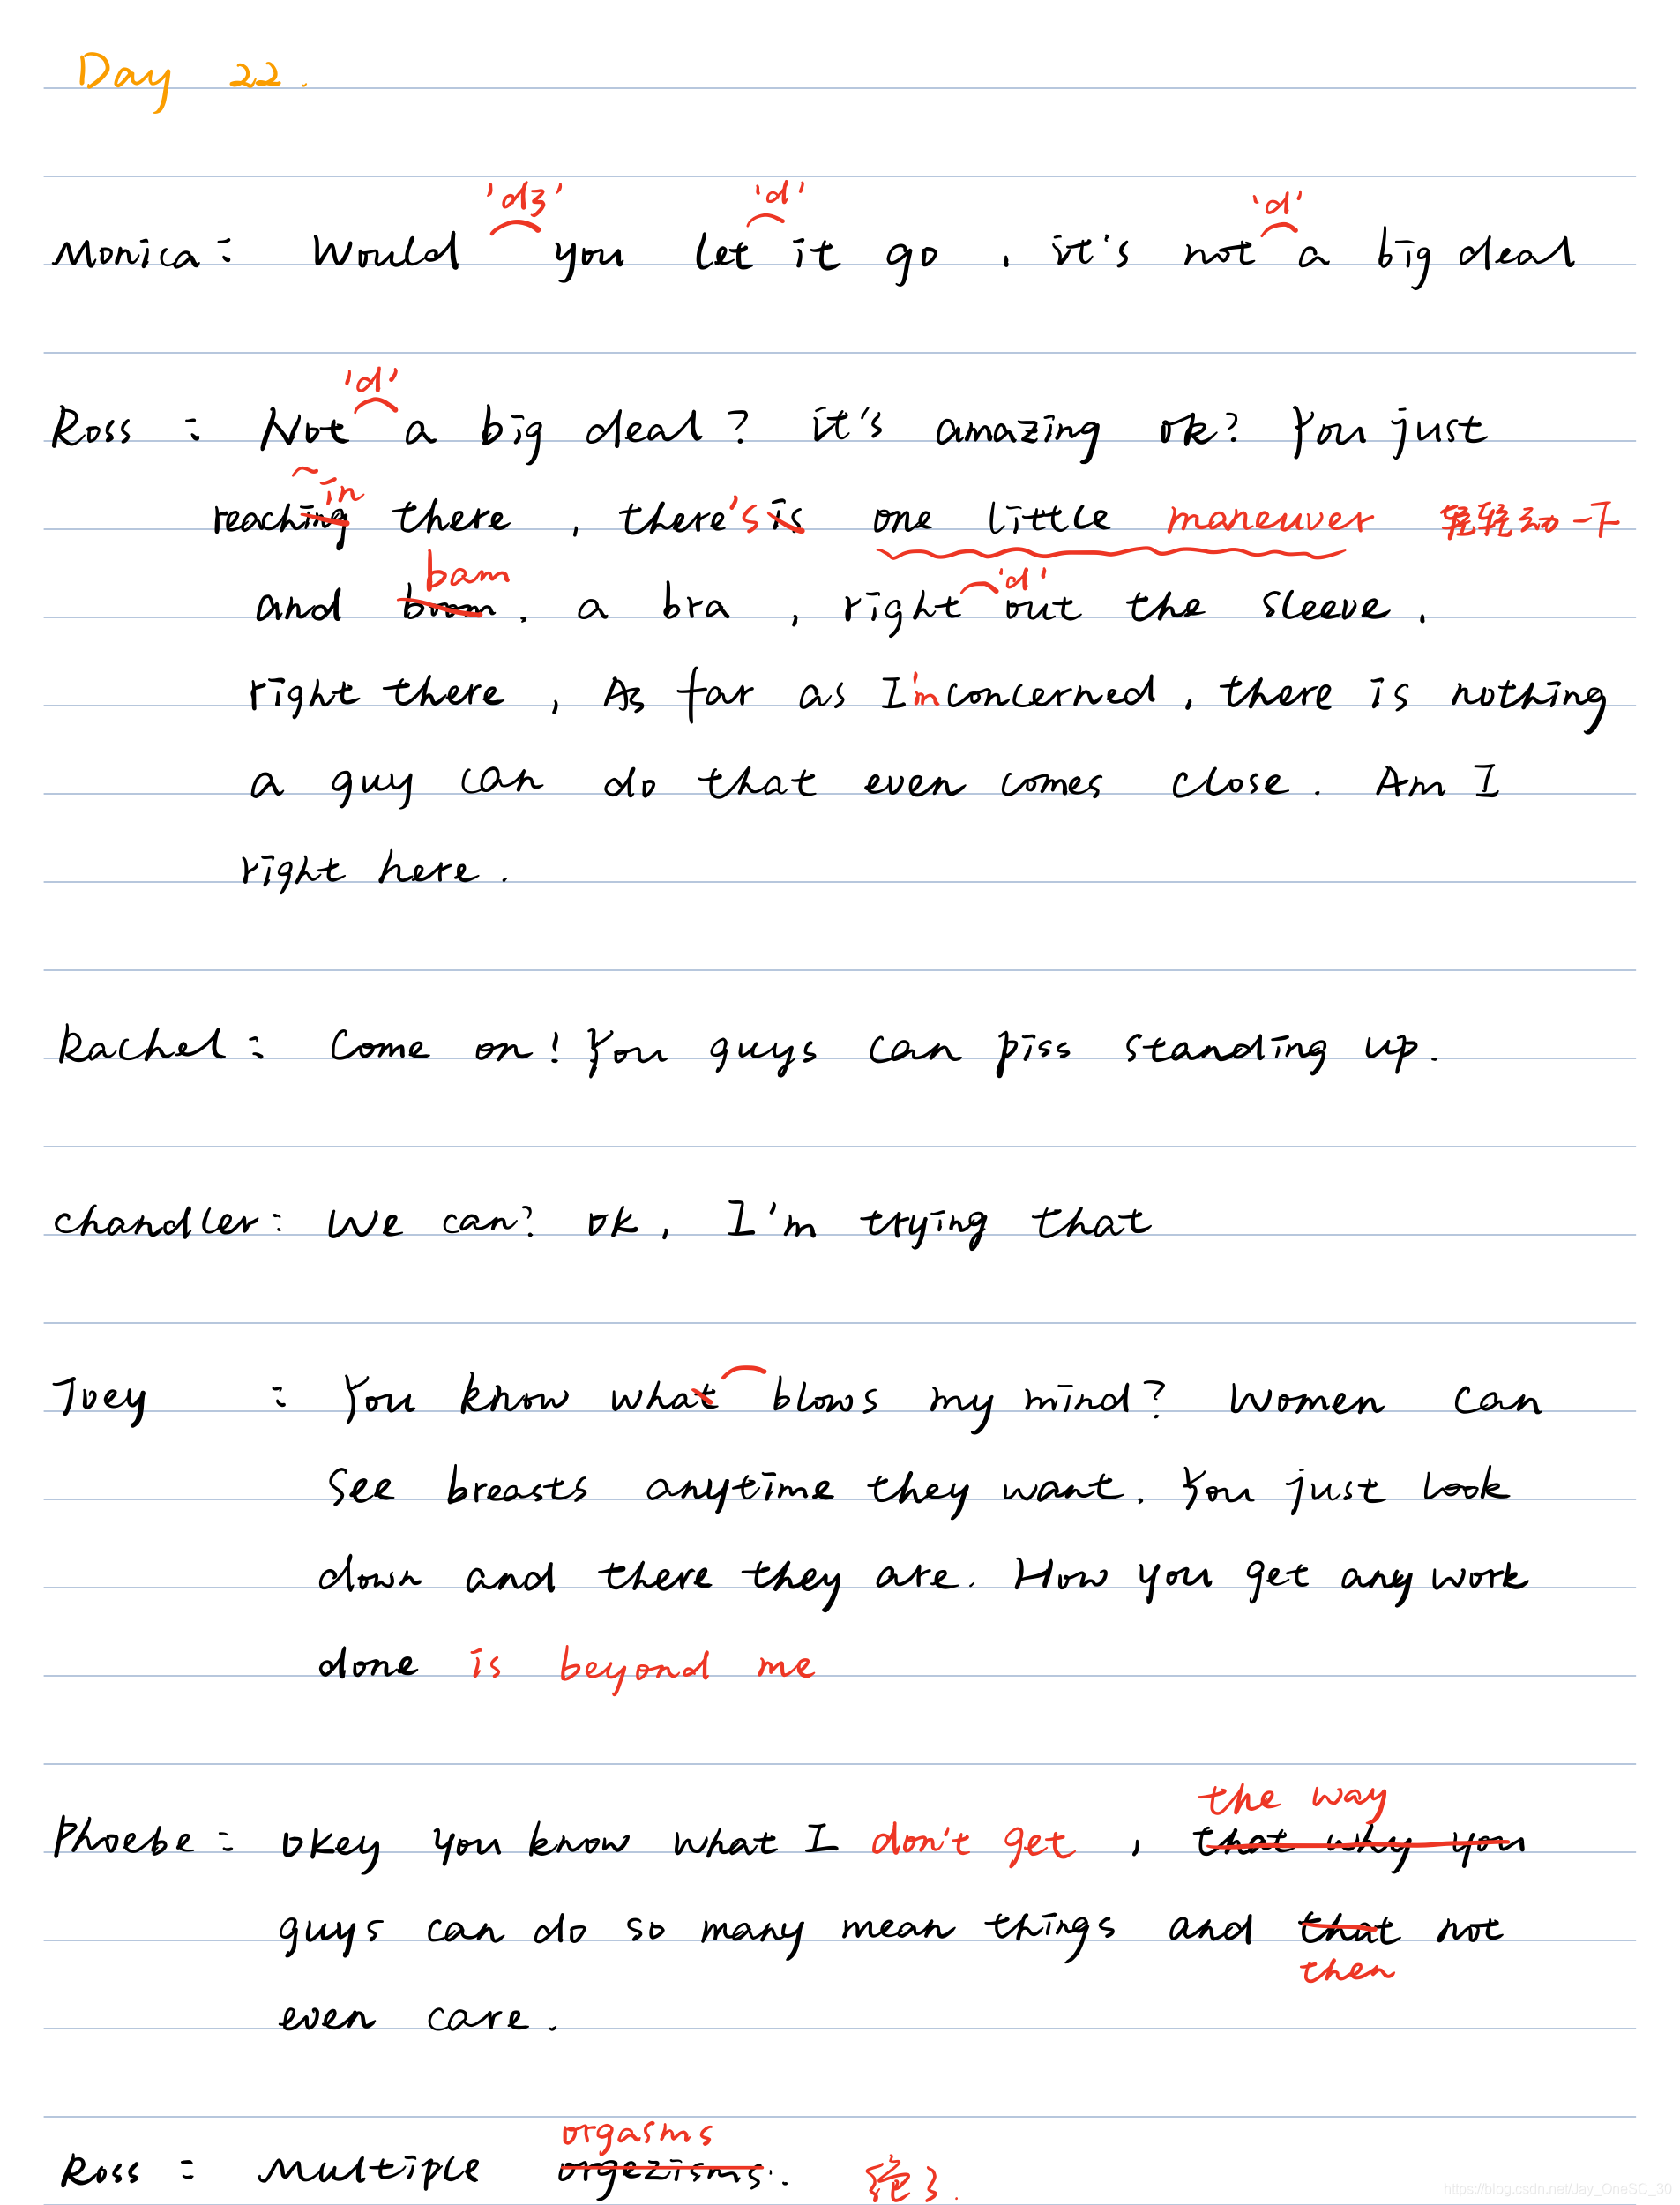 Day 22.
'dʒ' 'd' 'd'
Monica: Would you let it go, it's not a big deal
'd'
Ross: Not a big deal? it's amazing ok? You just
in
reaching there, there's is one little maneuver 轻轻动一下
bam 'd'
and boom. a bra, right out the sleeve.
right there, As far as I'm concerned, there is nothing
a guy can do that even comes close. Am I
right here.
Rachel: Come on! You guys can piss standing up.
chandler: We can? ok, I'm trying that
Joey: You know what blows my mind? Women can
see breasts anytime they want. You just look
down and there they are. How you get any work
done is beyond me
the way
Phoebe: okey you know what I don't get, that why you
guys can do so many mean things and that not
then
even care.
orgasms
Ross: Multiple orgezisms. 绝了.
https://blog.csdn.net/Jay_OneSC_30